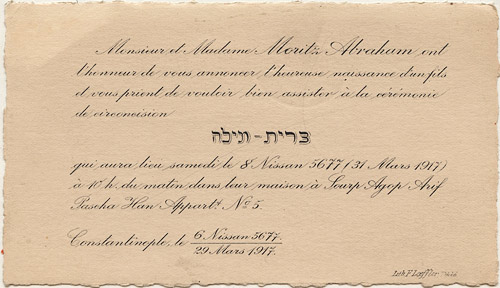 Monsieur et Madame Moritz Abraham ont
l'honneur de vous annoncer l'heureuse naissance d'un fils
et vous prient de vouloir bien assister à la cérémonie
de circoncision
ברית-מילה
qui aura lieu samedi le 8 Nissan 5677 (31 Mars 1917)
à 10 h. du matin dans leur maison à Sourp Agop Arif
Pascha Han Appart. No 5.
Constantinople, le 6 Nissan 5677.
29 Mars 1917.
Lith. F. Loeffler